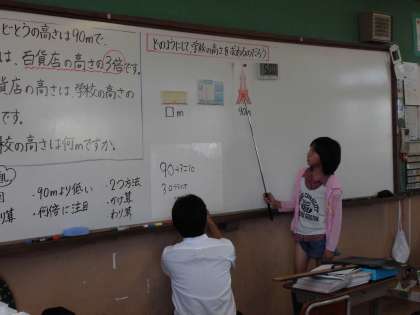 とうの高さは90mで、
は、百貨店の高さの3倍です。
貨店の高さは学校の高さの
です。
校の高さは何mですか。
どのようにして、学校の高さを求めるのだろう
□m
90m
・90mより低い
・何倍に注目
・2つ方法
かけ算
わり算